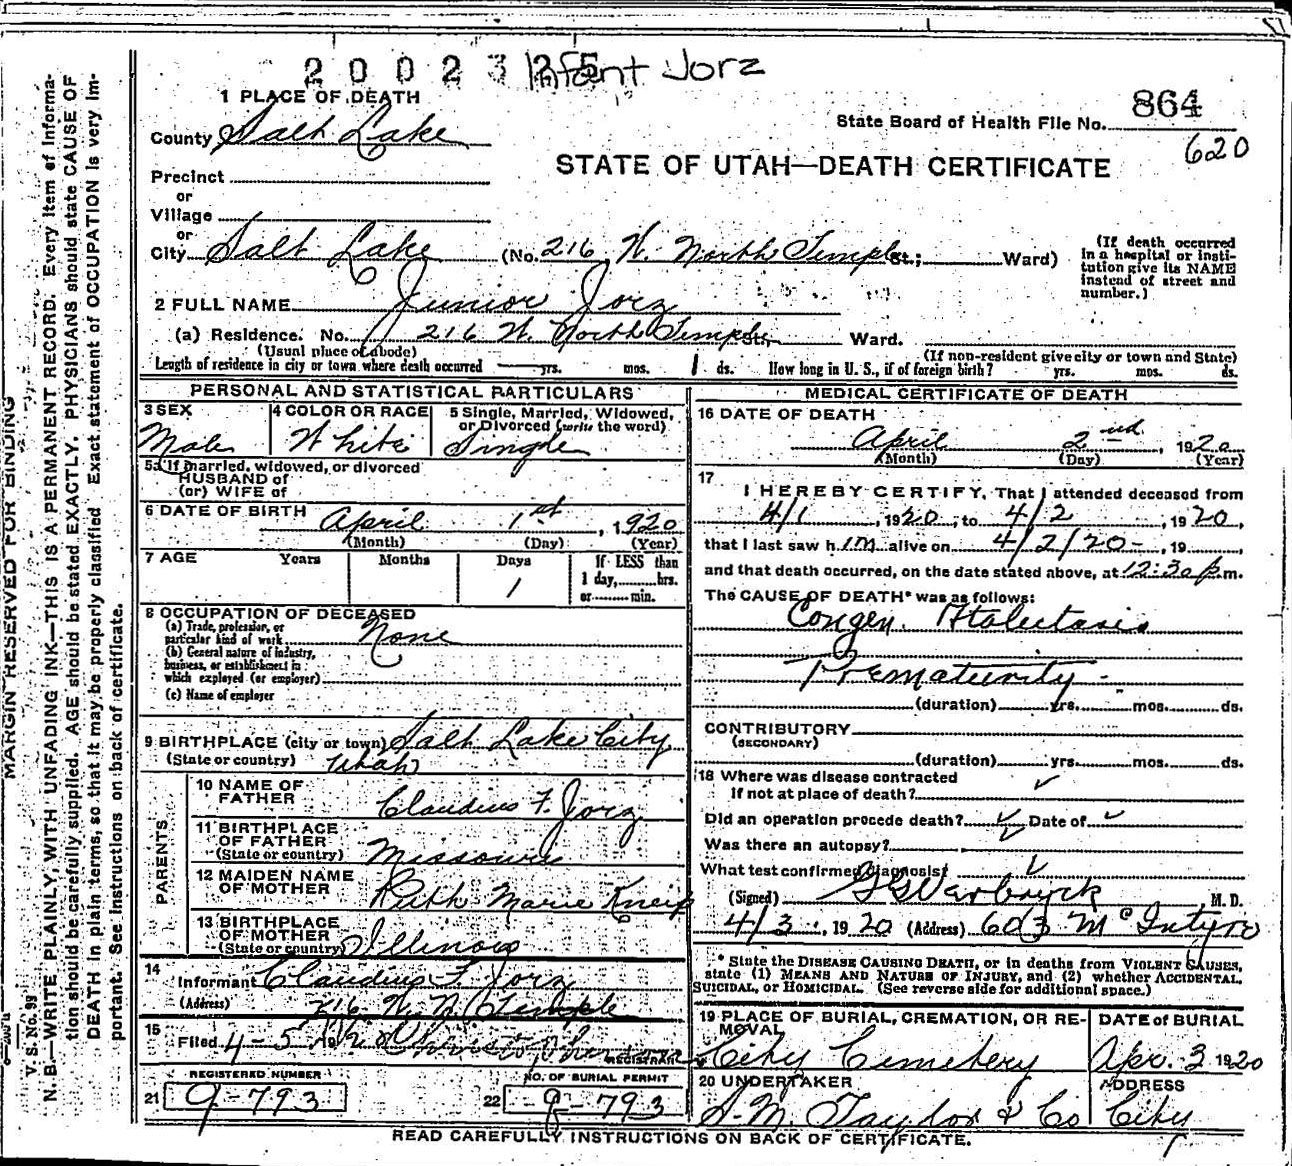 2 0 0 2 3 Infant Jorz
1 PLACE OF DEATH
864
County Salt Lake
State Board of Health File No.
620
STATE OF UTAH—DEATH CERTIFICATE
Precinct
or
Village
or
City Salt Lake (No. 216 W. North Temple St.; Ward)
(If death occurred in a hospital or institution give its NAME instead of street and number.)
2 FULL NAME Junior Jorz
(a) Residence. No. 216 W. North Temple St., Ward.
(Usual place of abode)
(If non-resident give city or town and State)
Length of residence in city or town where death occurred yrs. mos. 1 ds. How long in U. S., if of foreign birth? yrs. mos. ds.
PERSONAL AND STATISTICAL PARTICULARS
3 SEX
Male
4 COLOR OR RACE
White
5 Single, Married, Widowed, or Divorced (write the word)
Single
5a If married, widowed, or divorced
HUSBAND of
(or) WIFE of
6 DATE OF BIRTH April 1st, 1920
(Month) (Day) (Year)
7 AGE Years Months Days If LESS than
1 1 day, hrs.
or min.
8 OCCUPATION OF DECEASED
(a) Trade, profession, or particular kind of work None
(b) General nature of industry, business, or establishment in which employed (or employer)
(c) Name of employer
9 BIRTHPLACE (city or town) Salt Lake City
(State or country) Utah
PARENTS
10 NAME OF FATHER Claudius F. Jorz
11 BIRTHPLACE OF FATHER (State or country) Missouri
12 MAIDEN NAME OF MOTHER Ruth Marie Kneip
13 BIRTHPLACE OF MOTHER (State or country) Illinois
14 Informant Claudius F. Jorz
(Address) 216 W. N. Temple
15 Filed 4-5, 192 REGISTRAR
REGISTERED NUMBER
21 9-793
NO. OF BURIAL PERMIT
22 9-793
MEDICAL CERTIFICATE OF DEATH
16 DATE OF DEATH
April 2nd, 1920
(Month) (Day) (Year)
17
I HEREBY CERTIFY, That I attended deceased from
4/1, 1920, to 4/2, 1920,
that I last saw him alive on 4/2/20-, 19
and that death occurred, on the date stated above, at 12:30 p.m.
The CAUSE OF DEATH* was as follows:
Congen. Atalectasis
Prematurity -
(duration) yrs. mos. ds.
CONTRIBUTORY
(SECONDARY)
(duration) yrs. mos. ds.
18 Where was disease contracted
If not at place of death? ✓
Did an operation precede death? ✓ Date of ✓
Was there an autopsy? ✓
What test confirmed diagnosis? ✓
(Signed) M. D.
4/3, 1920 (Address) 603 McIntyre
* State the DISEASE CAUSING DEATH, or in deaths from VIOLENT CAUSES, state (1) MEANS AND NATURE OF INJURY, and (2) whether ACCIDENTAL, SUICIDAL, or HOMICIDAL. (See reverse side for additional space.)
19 PLACE OF BURIAL, CREMATION, OR REMOVAL
City Cemetery
DATE of BURIAL
Apr. 3 1920
20 UNDERTAKER
S. M. Taylor & Co
ADDRESS
City
READ CAREFULLY INSTRUCTIONS ON BACK OF CERTIFICATE.
MARGIN RESERVED FOR BINDING
V. S. No. 99
N. B.—WRITE PLAINLY, WITH UNFADING INK—THIS IS A PERMANENT RECORD. Every item of information should be carefully supplied. AGE should be stated EXACTLY. PHYSICIANS should state CAUSE OF DEATH in plain terms, so that it may be properly classified. Exact statement of OCCUPATION is very important. See instructions on back of certificate.